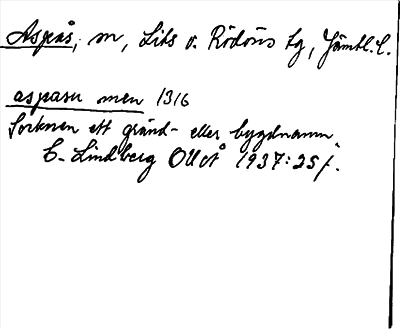 Aspås, m, Lits o. Rödöns tg, Jämtl. l.
aspasu men 1316
Socknen ett gränd- eller bygdnamn,
C. Lindberg OUÅ 1937:25 f.